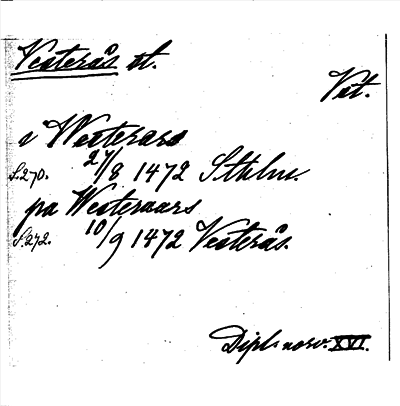 Vesterås st.
Vst.
i Westerars
S.270. 27/8 1472 Sthlm.
pa Westeraars
S.272. 10/9 1472 Vesterås.
Dipl. norv. XVI.